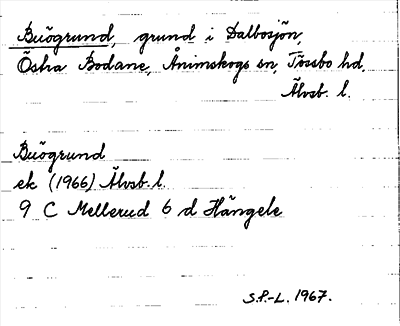 Buögrund, grund i Dalbosjön,
Östra Bodane, Ånimskogs sn, Tössbo hd,
Älvsb. l.
Buögrund
ek (1966) Älvsb. l.
9 C Mellerud 6 d Hängele
S.P.-L. 1967.